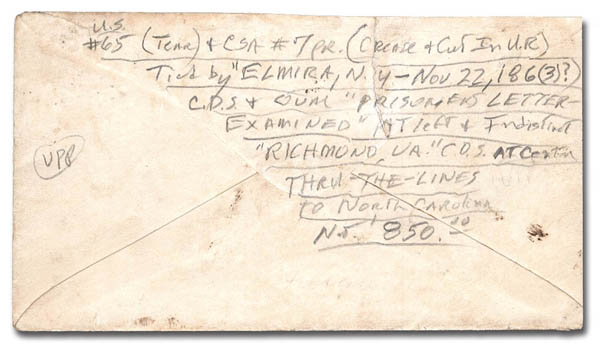 U.S.
#65 (Tear) & CSA #7 pr. (Crease & Cut In U.R)
Tied by "ELMIRA, N.Y - NOV 22, 186(3)?)
C.D.S & OVAL "PRISONERS LETTER-
EXAMINED" AT left & Indistinct
"RICHMOND, VA." C.D.S. AT Center
THRU-THE-LINES
to NORTH CAROLINA
N.T. 850.00
VPP